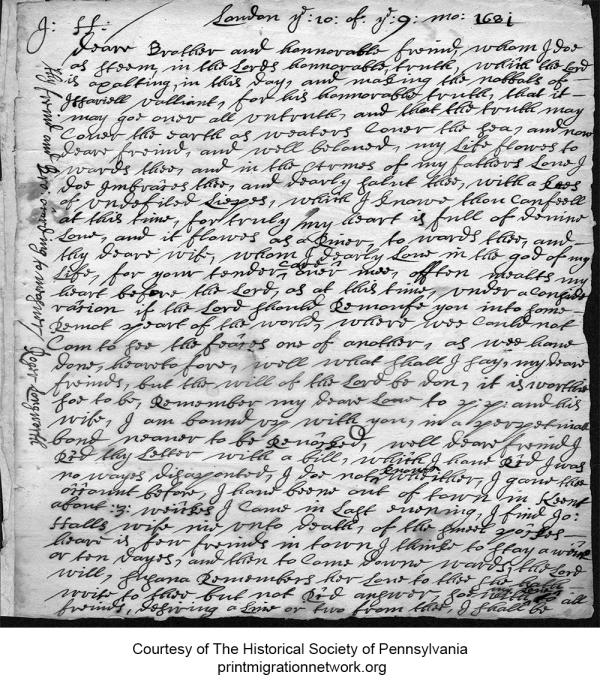 London ye: 10: of: ye: 9: mo: 1681
J: ff:
Deare Brother and honnorable freind, whom J doe
as steem, in the Lords honnorable truth, which the Lord
is exalting, in this day, and making the nobbals of
valliant, for his honnorable truth, that it
may goe over all untruth, and that the truth may
Cover the earth as weaters Cover the sea, and now
deare freind, and well beloved, my Life flowes to
wards thee, and in the Armes of my fathers Love J
doe Jmbrases thee, and dearly salut thee, with a kess
of undefiled Liepes, which J knowe thou Canst feell
at this time, for truly my heart is full of devine
Love, and it flowes as a River, to wards thee, and
thy deare wife, whom J dearly Love in the god of my
Life, for your tender Care over mee, offten mealts my
heart before the Lord, as at this time, under a Conside
ration if the Lord should Remove you into some
Remot peart of the world, where wee Could not
Com to see the feases one of another, as wee have
done, hearetofore, well what shall J say, my deare
freinds, but the will of the Lord be don, it is worthie
soe to be, Remember my deare Love to and his
wife, J am bound up with you, in a perpetuall
bond neaver to be Revoked, well deare freind J
Rcd thy Letter with a bill, which J have Rcd J was
no wayes disapointed, J doe not knowe whether, J gave the
acount before, J have beene out of town in Keent
about: 3: weickes J Came in Last evening, J find Jo:
Halls wife nie unto death, of the
heare is few freinds in town J thinke to stay a week
or ten dayes, and then to Come downe wards the Lord
will, Susana Remembers her Love to thee she hath
write to thee but not Rcd answer, soe with all
freinds, desiering a Line or two from thee, J shall be
thy freind and Bro: according to my Roger Longworth
Courtesy of The Historical Society of Pennsylvania
printmigrationnetwork.org